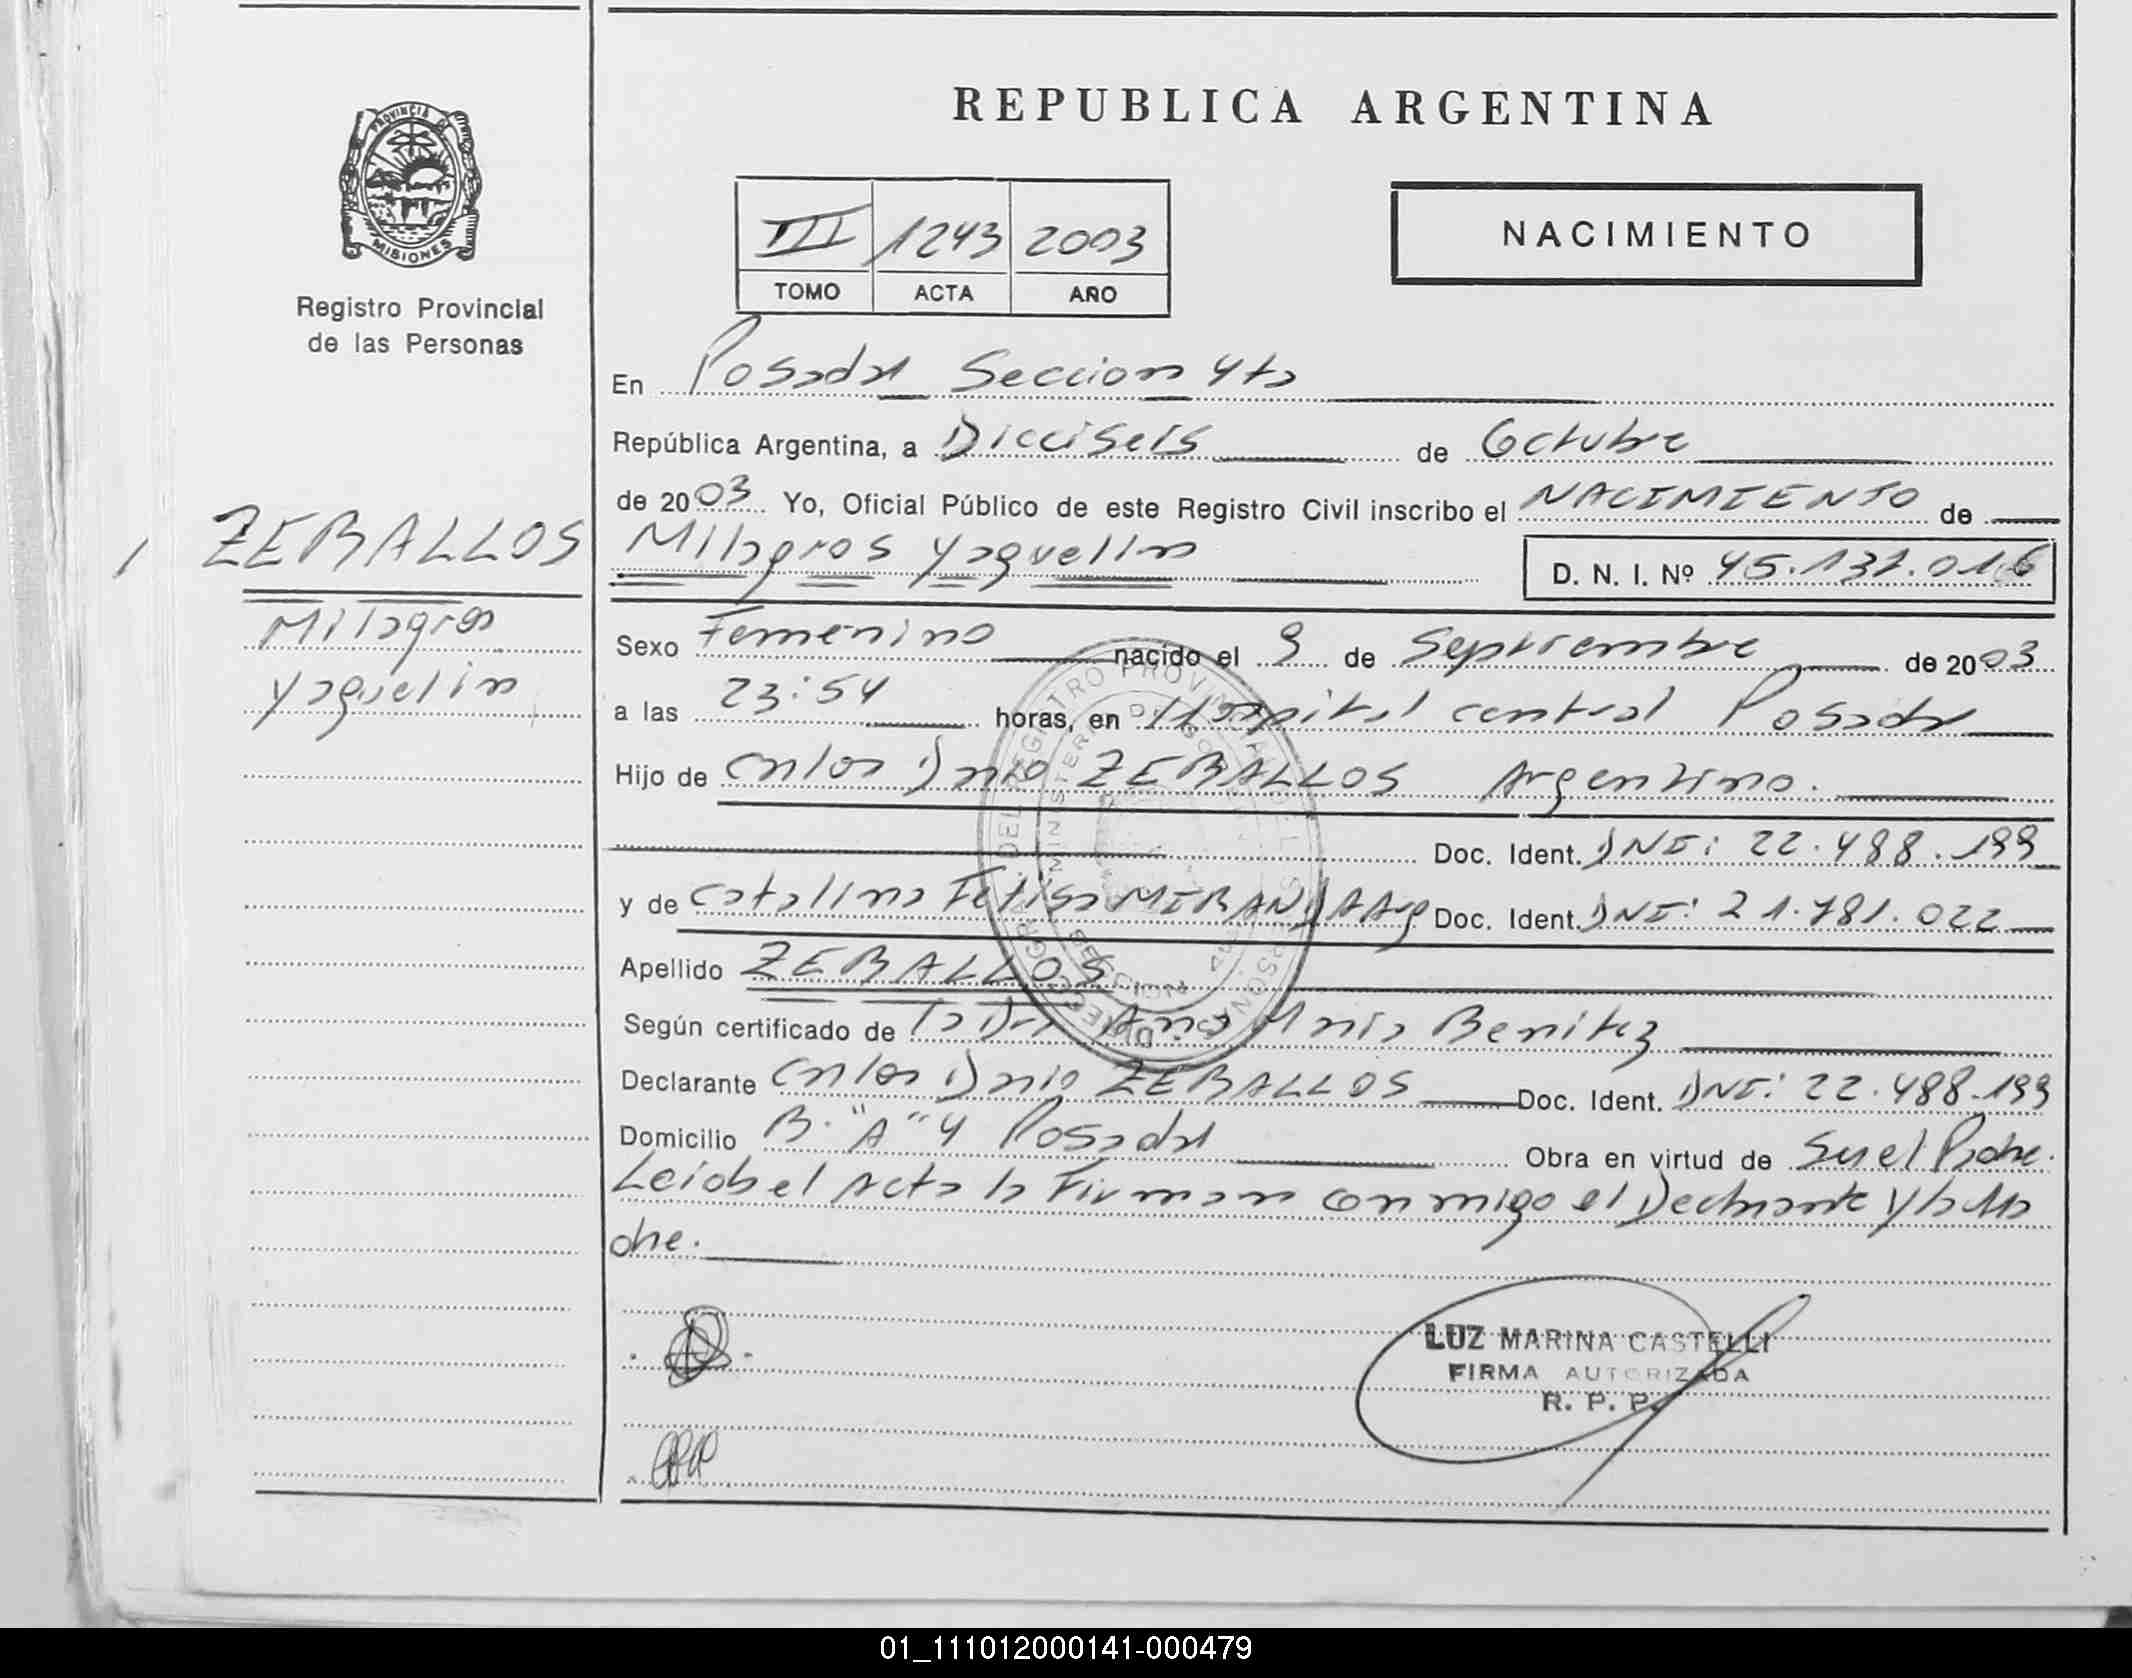 REPUBLICA ARGENTINA
PROVINCIA DE
MISIONES
Registro Provincial
de las Personas
III 1243 2003
TOMO ACTA AÑO
NACIMIENTO
En Posadas Seccion 4ta
República Argentina, a Dieciseis de Octubre
de 2003 Yo, Oficial Público de este Registro Civil inscribo el NACIMIENTO de
ZEBALLOS
Milagros Yaquelin
Milagros Yaquelin D. N. I. Nº 45.131.016
Sexo Femenino nacido el 9 de Septiembre de 2003
a las 23:54 horas, en Hospital central Posadas
Hijo de Carlos Dario ZEBALLOS Argentino.
Doc. Ident. DNI: 22.488.199
y de Catalina MIRANDA Arg Doc. Ident. DNI: 21.781.022
Apellido ZEBALLOS
Según certificado de la Dra Ana Maria Benitez
Declarante Carlos Dario ZEBALLOS Doc. Ident. DNI: 22.488.199
Domicilio B. "A" 4 Posadas Obra en virtud de Ser el Padre.
Leida el Acta la Firman conmigo el Declarante y la Ma
dre.
LUZ MARINA CASTELLI
FIRMA AUTORIZADA
R. P. P.
01_111012000141-000479